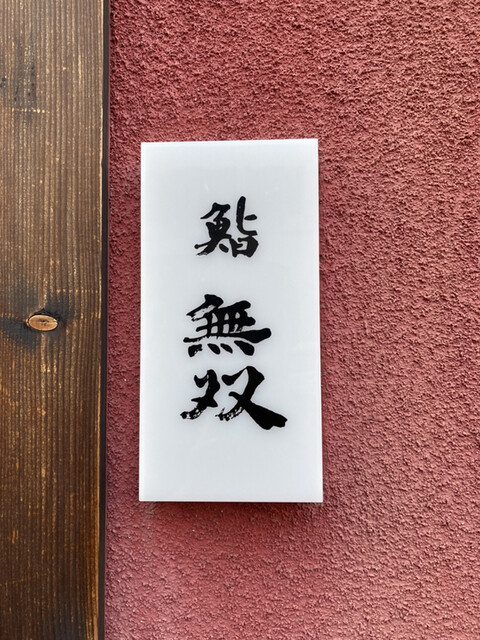 鮨
無双